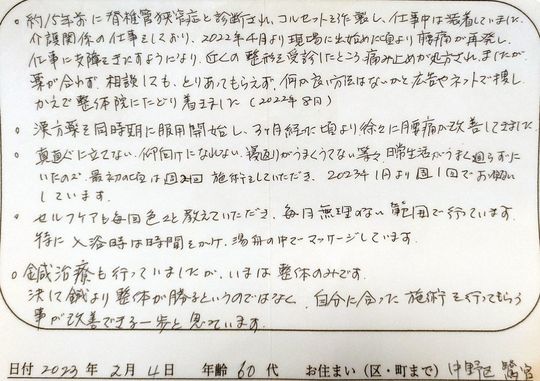 ○ 約15年前に脊柱管狭窄症と診断され、コルセットを作製し、仕事中は装着していました。
介護関係の仕事をしており、2022年4月より現場に出始めた頃より腰痛が再発し、
仕事に支障をきたすようになり、近くの整形を受診したところ痛み止めが処方されましたが、
薬が合わず、相談しても、とりあってもらえず、何か良い方法はないかと広告やネットで捜し、
かえで整体院にたどり着きました(2022年8月)
○ 漢方薬を同時期に服用開始し、3ヶ月経った頃より徐々に腰痛が改善してきました。
○ 真直ぐに立てない、仰向けになれない、寝返りがうまくうてない等々 日常生活がうまく
いたので、最初の頃は週2回 施術をしていただき、2023年1月より週1回でお願い
しています。
○ セルフケアも毎回色々と教えていただき、毎日無理のない範囲で行っています。
特に入浴時は時間をかけ、湯舟の中でマッサージしています。
○ 鍼治療も行っていましたが、いまは整体のみです。
決して鍼より整体が勝るというのではなく、自分に合った施術を行ってもらう
事が改善できる一歩と思っています。
日付 2023年 2月 4日 年齢 60代 お住まい(区・町まで) 中野区 鷺宮